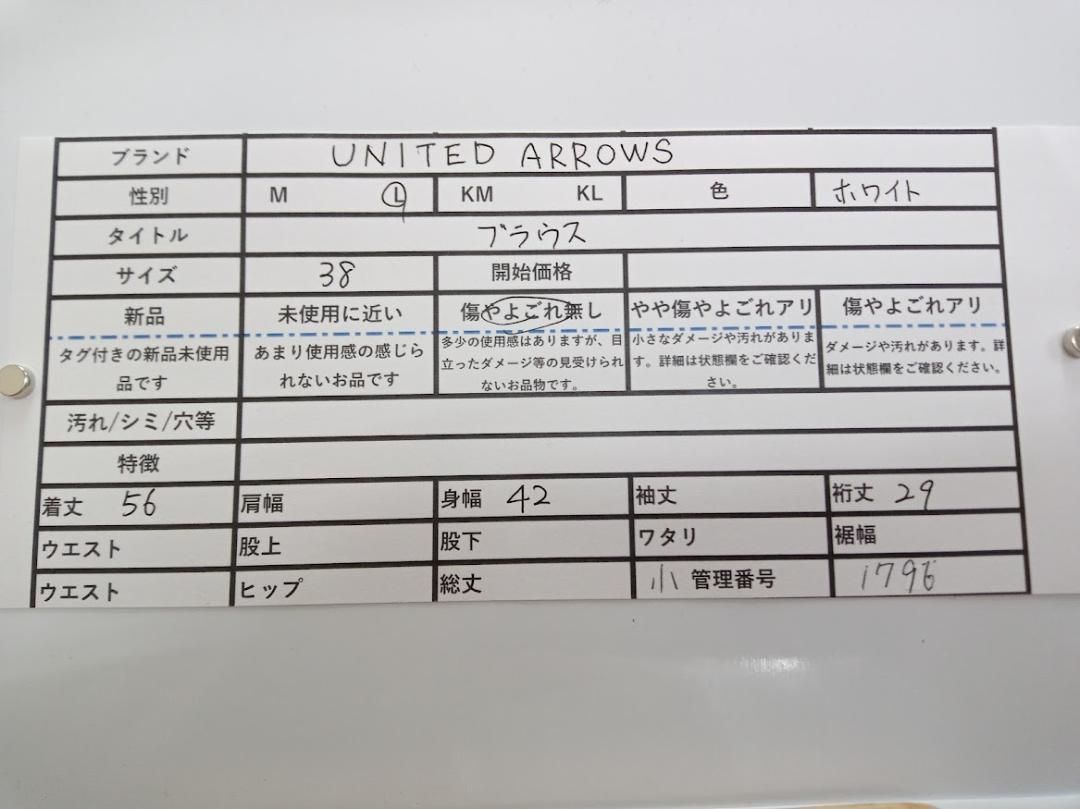 ブランド UNITED ARROWS
性別 M L KM KL 色 ホワイト
タイトル ブラウス
サイズ 38 開始価格
新品 未使用に近い 傷やよごれ無し やや傷やよごれアリ 傷やよごれアリ
タグ付きの新品未使用品です
あまり使用感の感じられないお品です
多少の使用感はありますが、目立ったダメージ等の見受けられないお品物です。
小さなダメージや汚れがあります。詳細は状態欄をご確認ください。
ダメージや汚れがあります。詳細は状態欄をご確認ください。
汚れ/シミ/穴等
特徴
着丈 56 肩幅 身幅 42 袖丈 裄丈 29
ウエスト 股上 股下 ワタリ 裾幅
ウエスト ヒップ 総丈 小 管理番号 1796